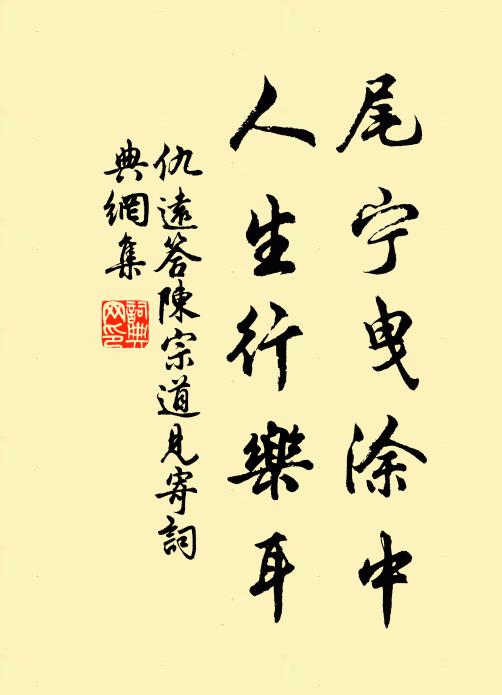 尾宁曳涂中
人生行樂耳
仇遠答陳宗道見寄詞
典網集
詞典网印